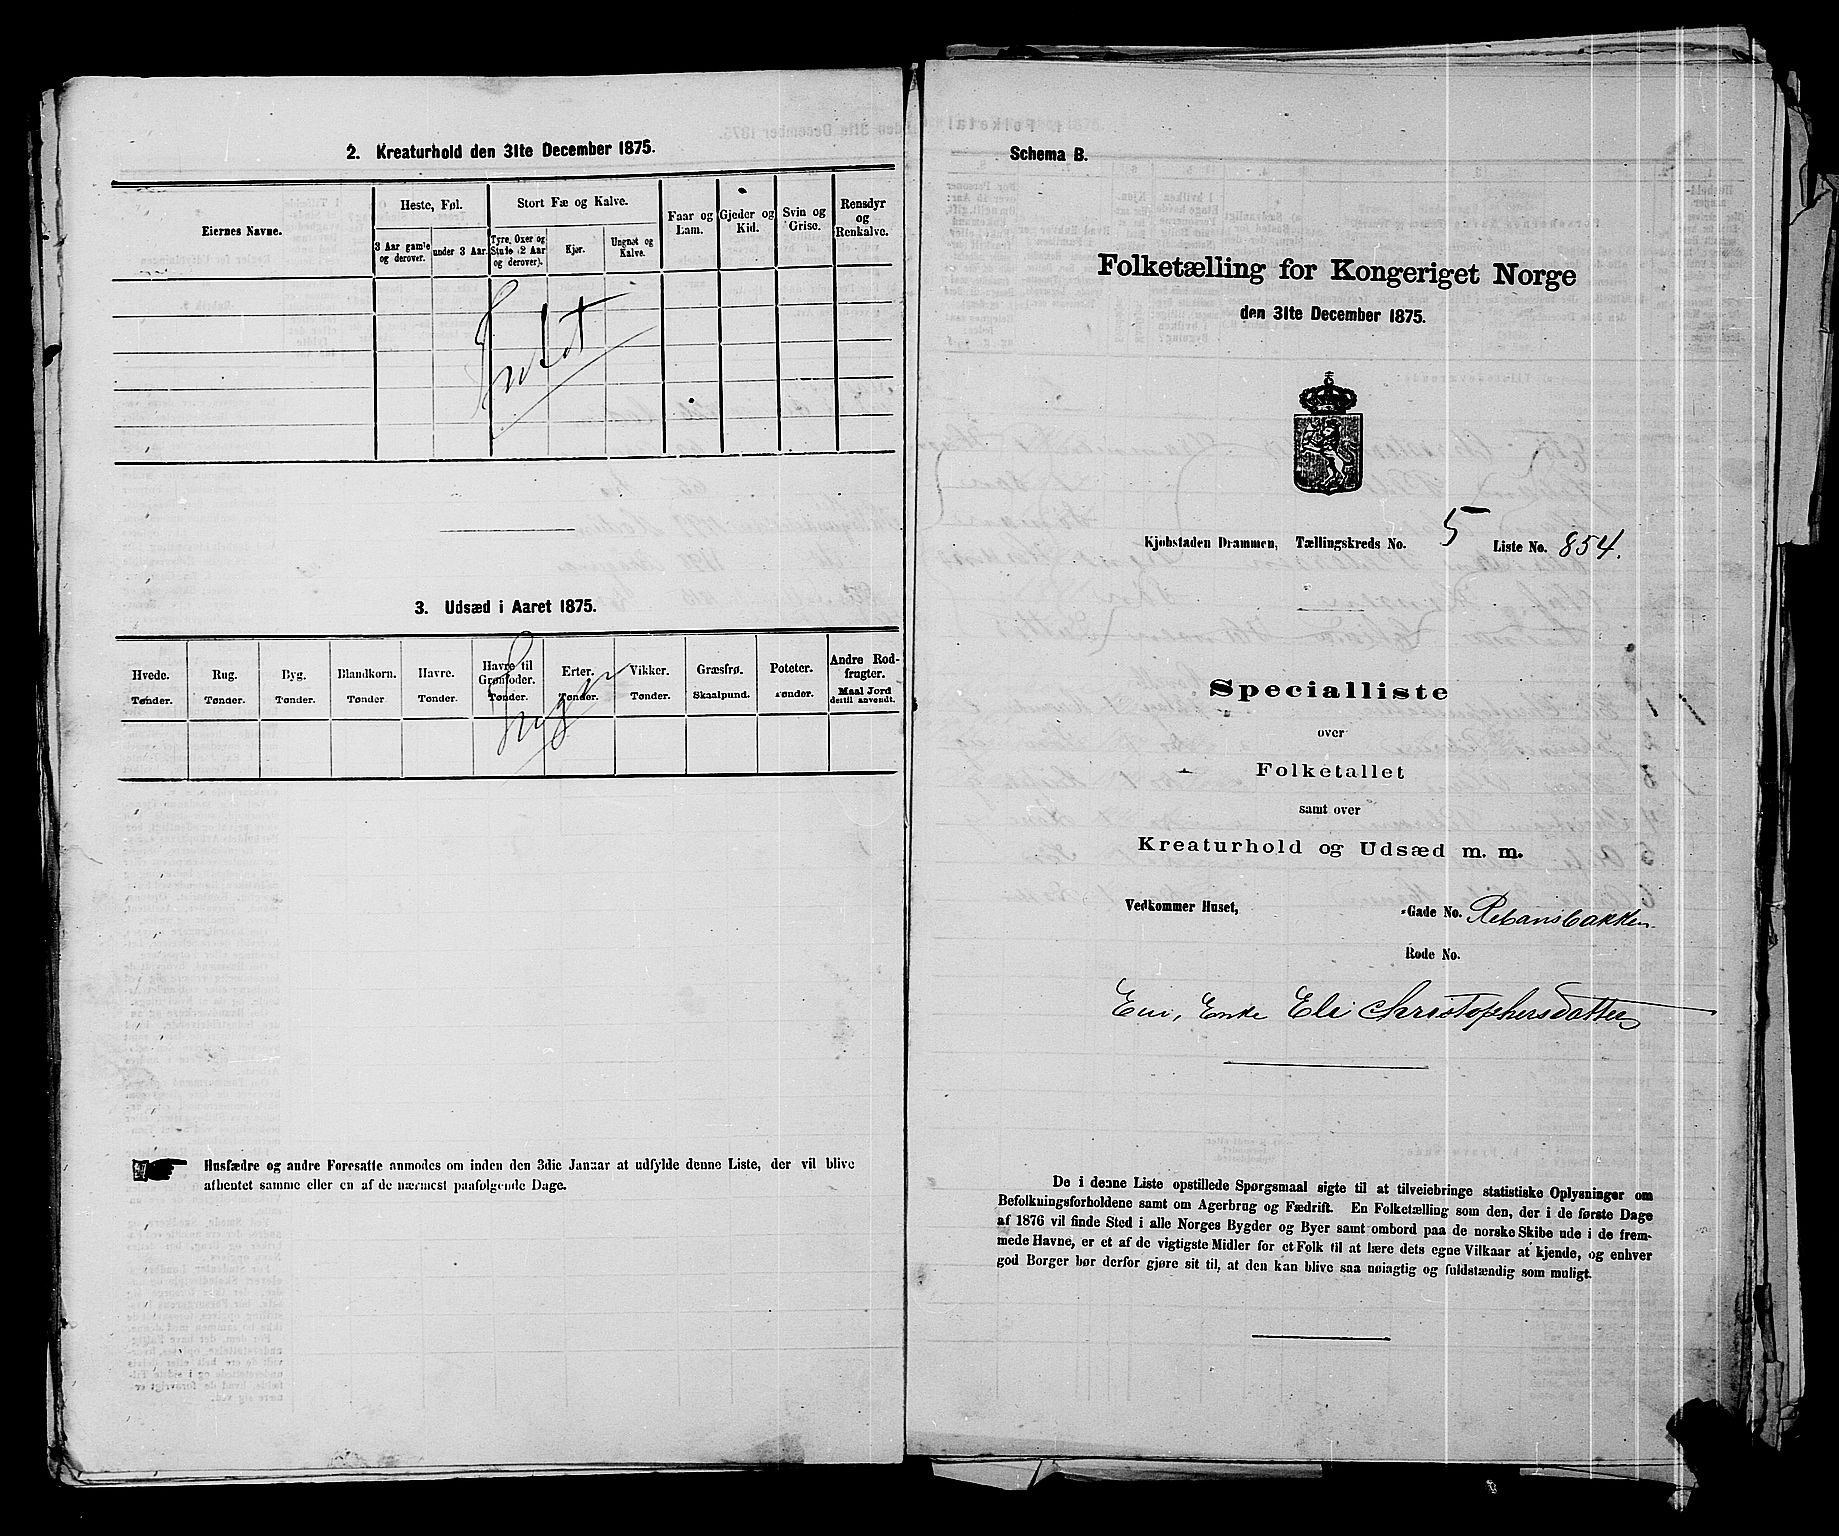 2. Kreaturhold den 31te December 1875.
Eiernes Navne.
Heste, Føl.
3 Aar gamle og derover.
under 3 Aar.
Stort Fæ og Kalve.
Tyre, Oxer og Stude (2 Aar og derover).
Kjør.
Ungnøt og Kalve.
Faar og Lam.
Gjeder og Kid.
Svin og Grise.
Rensdyr og Renkalve.
Intet
3. Udsæd i Aaret 1875.
Hvede. Rug. Byg. Blandkorn. Havre. Havre til Grønfoder. Erter. Vikker. Græsfrø. Poteter. Andre Rodfrugter.
Tønder. Tønder. Tønder. Tønder Tønder. Tønder. Tønder. Tønder. Skaalpund. Tønder. Maal Jord dertil anvendt.
Husfædre og andre Foresatte anmodes om inden den 3die Januar at udfylde denne Liste, der vil blive
afhentet samme eller en af de nærmest paafølgende Dage.
Schema B.
Folketælling for Kongeriget Norge
den 31te December 1875.
Kjøbstaden Drammen, Tællingskreds No. 5 Liste No. 854.
Specialliste
over
Folketallet
samt over
Kreaturhold og Udsæd m. m.
Vedkommer Huset, -Gade No. Rebansbakken
Rode No.
Eier, Enke Eli Christophersdatter
De i denne Liste opstillede Spørgsmaal sigte til at tilveiebringe statistiske Oplysninger om
Befolkningsforholdene samt om Agerbrug og Fædrift. En Folketælling som den, der i de første Dage
af 1876 vil finde Sted i alle Norges Bygder og Byer samt ombord paa de norske Skibe ude i de frem-
mede Havne, er et af de vigtigste Midler for et Folk til at lære dets egne Vilkaar at kjende, og enhver
god Borger bør derfor gjøre sit til, at den kan blive saa nøiagtig og fuldstændig som muligt.